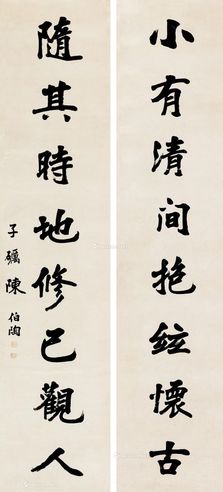 小有清间抱絃懷古
隨其時地修己觀人
子礪陳伯陶